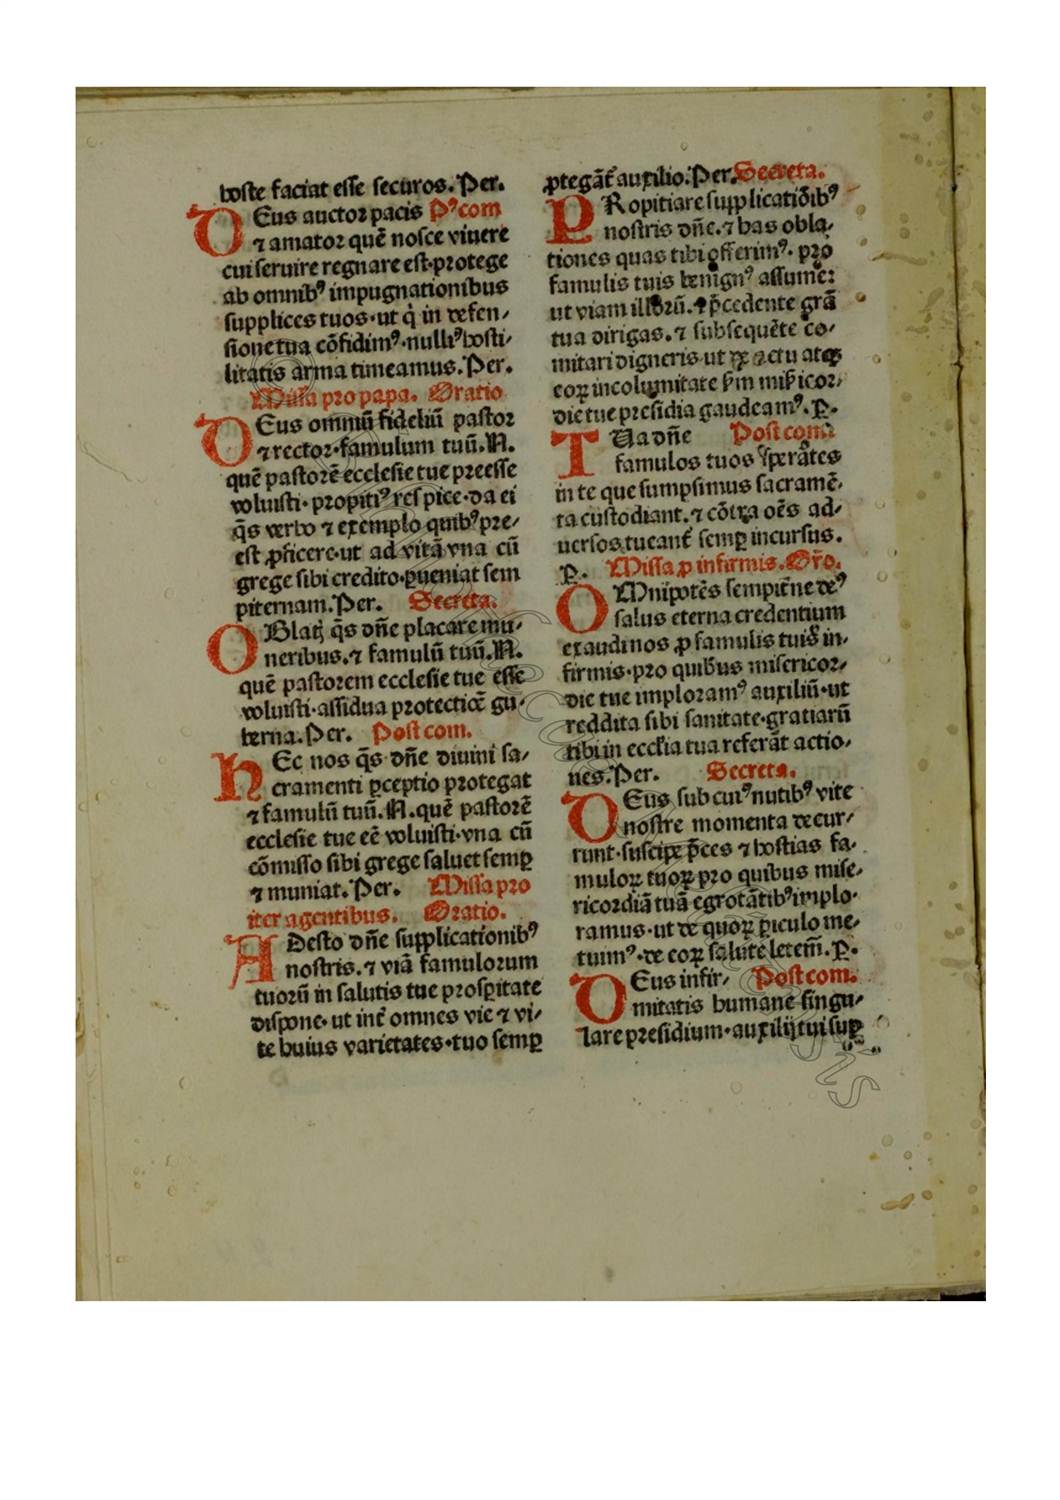 hoste faciat esse securos. Per.
DEus auctor pacis Pꝰcom
⁊ amator quē nosce viuere
cui seruire regnare est·protege
ab omnibꝰ impugnationibus
supplices tuos·ut q̇ in defen/
sione tua cōfidimꝰ·nulliꝰ hosti/
litatis arma timeamus. Per.
Missa pro papa. Oratio
DEus omniū fideliū pastor
⁊ rector·famulum tuū. N.
quē pastorē ecclesie tue preesse
voluisti·propitiꝰ respice·da ei
q̄s verbo ⁊ exemplo quibꝰ pre/
est ꝓficere·ut ad vitā vna cū
grege sibi credito·ꝑueniat sem
piternam. Per. Secreta.
OBlatꝭ q̄s dn̄e placare mu/
neribus. ⁊ famulū tuū. N.
quē pastorem ecclesie tue esse
voluisti·assidua protectiōe gu/
berna. Per. Post com.
HEc nos q̄s dn̄e diuini sa/
cramenti ꝑceptio protegat
⁊ famulū tuū. N. quē pastorē
ecclesie tue eē voluisti·vna cū
cōmisso sibi grege saluet semꝑ
⁊ muniat. Per. Missa pro
iter agentibus. Oratio.
ADesto dn̄e supplicationibꝰ
nostris. ⁊ viā famulorum
tuorū in salutis tue prosꝑitate
dispone·ut int̄ omnes vie ⁊ vi/
te huius varietates·tuo semꝑ
ꝓtegāt̄ auxilio. Per. Secreta.
PRopitiare supplicatiōibꝰ
nostris dn̄e. ⁊ has obla/
tiones quas tibi offerimꝰ· pro
famulis tuis benignꝰ assume:
ut viam illorū. ⁊ p̄cedente grā
tua dirigas. ⁊ subsequēte co/
mitari digneris·ut de actu atqꝫ
eoꝝ incolumitate s̄m miẜicor/
die tue presidia gaudeamꝰ. P.
TUa dn̄e Post com̄
famulos tuos sperātes
in te que sumpsimus sacramē/
ta custodiant. ⁊ cōtra oēs ad/
uersos tueant̄ semꝑ incursus.
P. Missa ꝓ infirmis. Or̄o.
OMnipotēs sempit̄ne deꝰ
salus eterna credentium
exaudi nos ꝓ famulis tuis in/
firmis·pro quibus misericor/
die tue imploramꝰ auxiliū·ut
reddita sibi sanitate·gratiarū
tibi in eccľia tua referāt actio/
nes. Per. Secreta.
DEus sub cuiꝰ nutibꝰ vite
nostre momenta decur/
runt·suscipe p̄ces ⁊ hostias fa/
muloꝝ tuoꝝ pro quibus mise/
ricordiā tuā egrotātibꝰ implo/
ramus·ut de quoꝝ ꝑiculo me/
tuimꝰ·de eoꝝ salute letem̄. P.
DEus infir/ Post com.
mitatis humane singu/
lare presidium·auxilij tui suꝑ